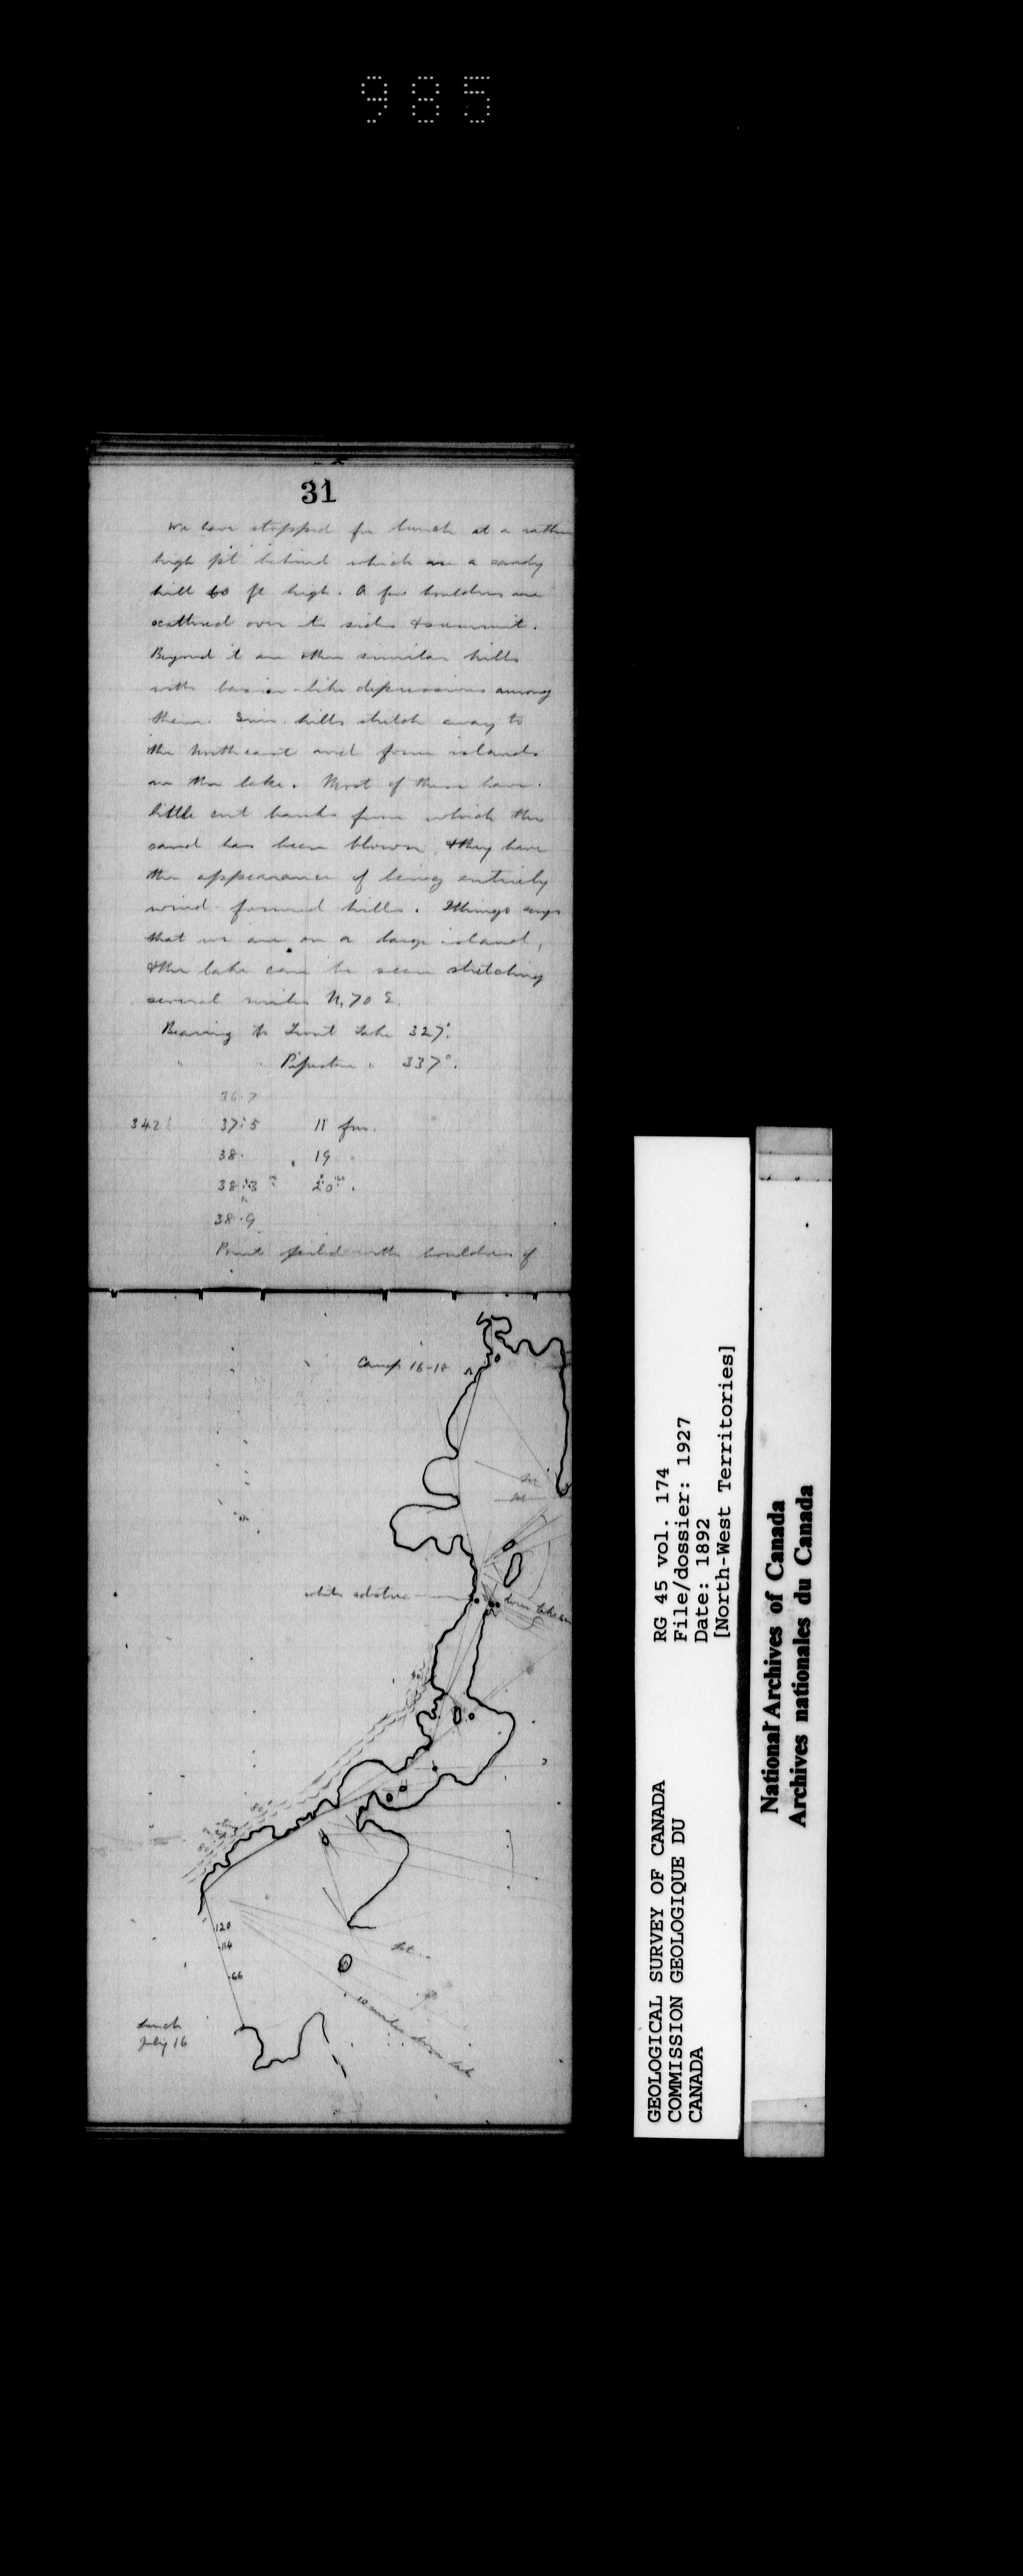 985
31
We have stopped for lunch at a rather
high pt behind which are a sandy
hill 60 ft high. A few boulders are
scattered over its sides & summit.
Beyond it are other similar hills
with basin-like depressions among
them. hills stretch away to
the northeast and form islands
in the lake. Most of these have
little cut banks from which the
sand has been blown, & they have
the appearance of being entirely
wind formed hills. says
that we are on a large island,
& the lake can be seen stretching
several miles N.70 E.
Bearing to Trout Lake 327°.
" " Pipestone " 337°.
36.7
342 37.5 11 fm.
38. 19 "
38.3 20
38.9
Point piled with boulders of
Camp 16-18
white
down lake
120
114
66
Lunch
July 16
10 miles down lake
GEOLOGICAL SURVEY OF CANADA
COMMISSION GEOLOGIQUE DU
CANADA
RG 45 vol. 174
File/dossier: 1927
Date: 1892
[North-West Territories]
National Archives of Canada
Archives nationales du Canada